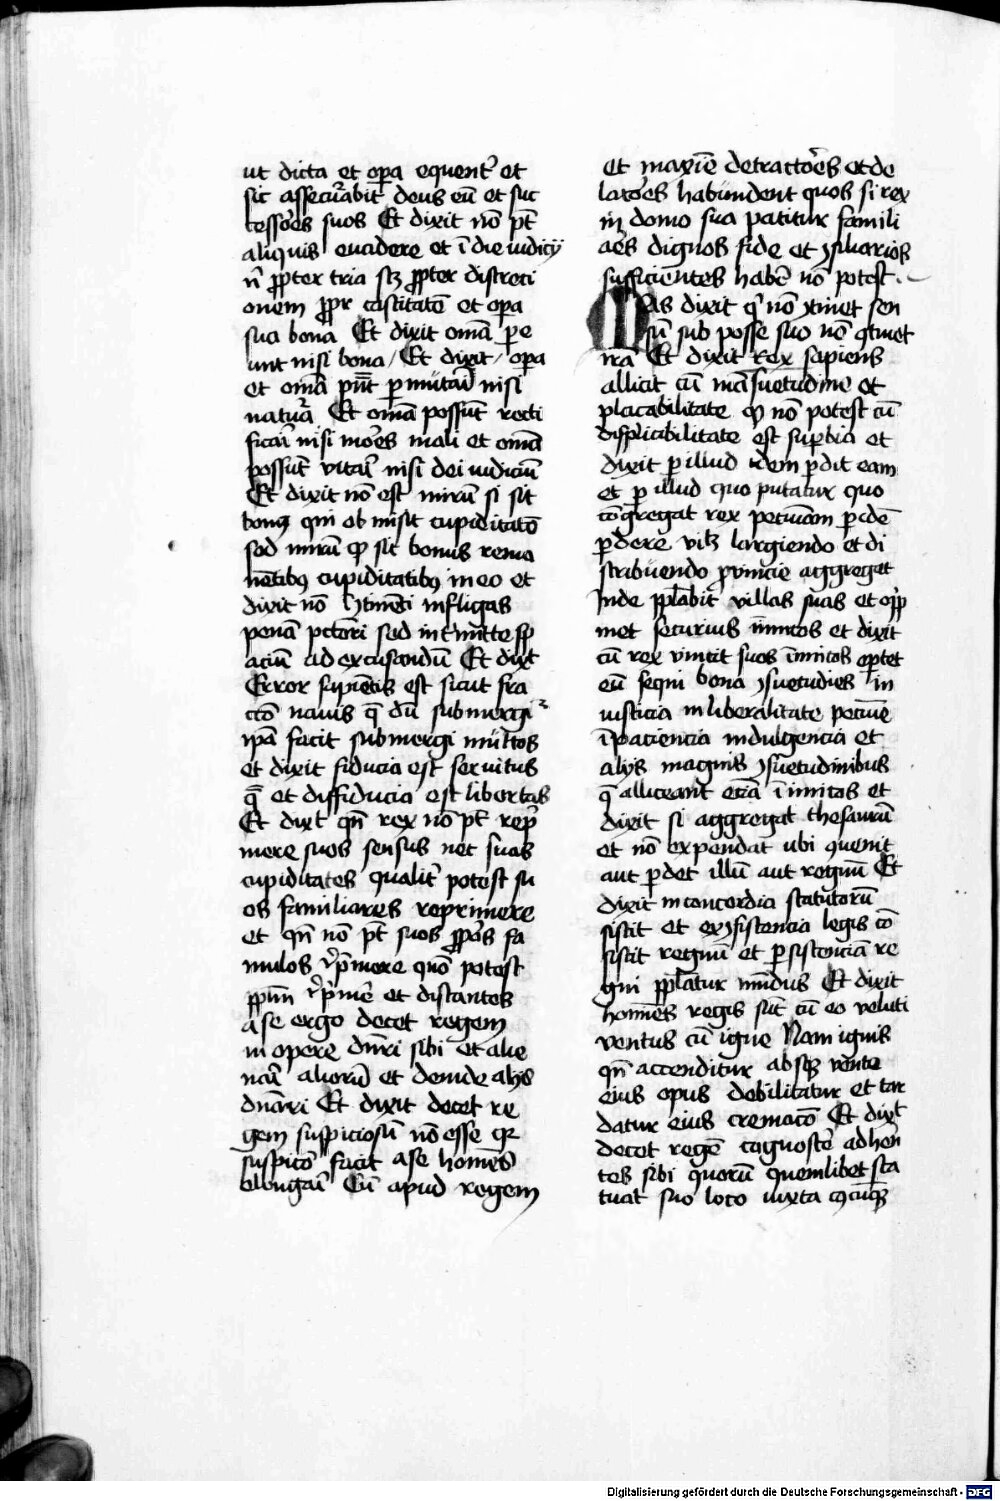 ut dicta et oꝑa equent᷑ et
sic assecurabit deus eū et suc
cessores suos Et dixit nō pt̄
aliquis euadere et ī die iudicij
n̄ ꝓpter tria sꝫ ꝓpter discreti
onem ꝓpr castitatē et oꝑa
sua bona Et dixit om̄ia pe
unt nisi bona / Et dixit / oꝑa
et om̄ia pn̄t ꝑmutari nisi
natura Et om̄ia possūt recti
ficari nisi mores mali et om̄ia
possūt vitari nisi dei iudiciū
Et dixit nō est mirū si sit
bonꝰ qui ob misit cupiditatē
sed mirū ꝙ sit bonus rema
nētibꝰ cupiditatibꝰ in eo et
dixit nō infligas
penā pctōri sed int͛mitte sp
aciū ad excusandū Et dixt
Error sapiētis est sicut fra
ctō nauis q̄ dū submergit᷑
ipā facit submergi multos
et dixit fiducia est seruitus
q̄ et diffiducia est libertas
Et dixt qn̄ rex nō pt̄ rep͛
mere suos sensus nec suas
cupiditates qualit᷑ potest su
os familiares reprimere
et qn̄ nō pt̄ suos ꝓpos fa
mulos rep͛mere quō potest
pplm̄ rep͛mē et distantes
a se ergo decet regem
in opere dn̄ari sibi et alie
nari alioꝝ et deinde alijs
dn̄ari Et dixit decet re
gem suspiciosū nō esse qr
suspicō facit a se homīes
elongari Cū apud regem
Et maxīe detractores et de
latores habundent quos si rex
in domo sua patitur famili
ares dignos fide et ꝯsiliarios
sufficientes habē nō potest ·
Mas dixit q͛ nō ꝯtinet sen
sū sub posse suo nō ꝯtinet
irā Et dixit Rex sapiens
allicit cū māsuetudine et
placabilitate ꝙ nō potest cū
displicibilitate est suꝑbia et
dixit ꝑ illud idem ꝑdit eam
et ꝑ illud quo putatur quo
cōgregat rex pecuniam ꝑ idē
ꝑdere vꝫ largiendo et di
stribuendo ꝓvincie aggreget
Inde pplabit villas suas et opp͛
met securius inimicos et dixit
cū rex vincit suos īmicos oꝑtet
eū sequi bona ꝯsuetudies in
iusticia in liberalitate pecunie
ī paciencia indulgencia et
alijs magnis ꝯsuetudinibus
q̄ alliceant eciā īimicos et
dixit si aggregat thesaurū
et nō expendat ubi ꝯuenit
aut ꝑdet illū aut regnū Et
dixit in concordia statutorū
sistit et exꝯsistencia legis cō
sistit regnū et ꝑsistenciā re
gni pplatur mūdus Et dixit
homines regis sūt cū eo veluti
ventus cū igne Nam ignis
qn̄ accenditur absqꝫ vento
eius opus debilitatur et tar
datur eius cremacō Et dixt
decet regē cognosce͛ adherē
tes sibi quorū quemlibet sta
tuat suo loco iuxta